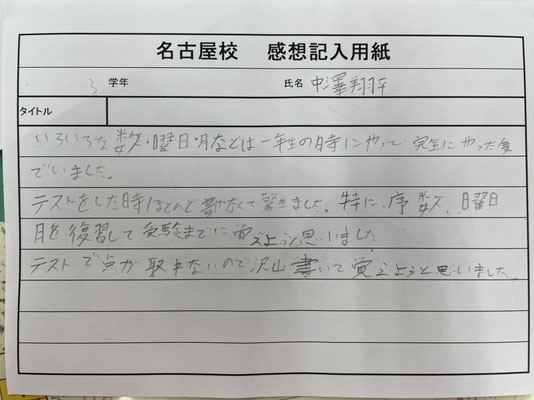 名古屋校 感想記入用紙
3 学年 氏名 中澤翔平
タイトル
いろいろな数・曜日・月などは一年生の時にやって 完全にやった気
でいました。
テストをした時ほとんど書けなくて驚きました。特に、序数、曜日
月を復習して受験までに覚えようと思いました
テストで点が取れないので沢山書いて覚えようと思いました。